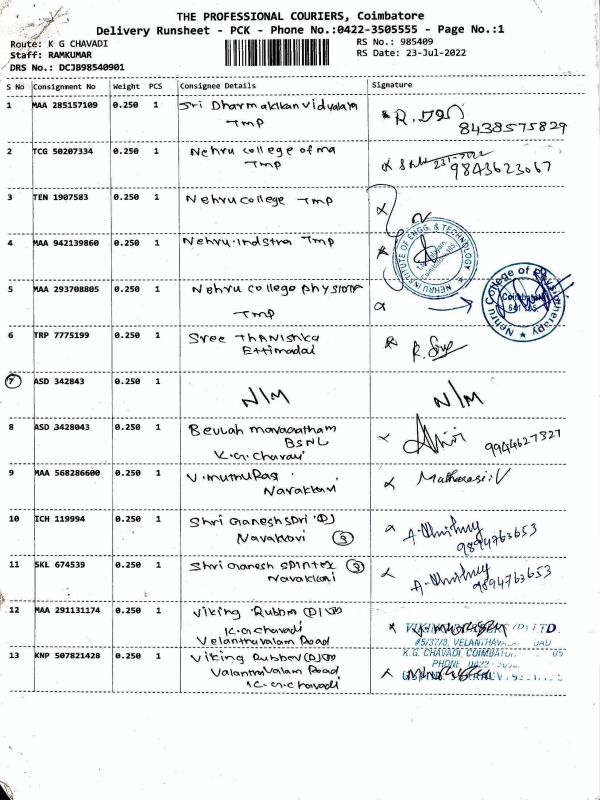 THE PROFESSIONAL COURIERS, Coimbatore
Delivery Runsheet - PCK - Phone No.:0422-3505555 - Page No.:1
Route: K G CHAVADI
Staff: RAMKUMAR
DRS No.: DCJB98540901
RS No.: 985409
RS Date: 23-Jul-2022
S No Consignment No Weight PCS Consignee Details Signature
1 MAA 285157109 0.250 1 Sri Dharmakkan vidyalaya
TMP
8438575829
2 TCG 50207334 0.250 1 Nehru college of ma
TMP
9843623067
3 TEN 1907583 0.250 1 Nehru college TMP
4 MAA 942139860 0.250 1 Nehru. indstra TMP
NEHRU INSTITUTE OF ENGG. & TECHNOLOGY
5 MAA 293708805 0.250 1 Nehru college physiotr
TMP
Nehru College of Physiotherapy
Coimbatore
641 105.
6 TRP 7775199 0.250 1 Sree THANISHKA
Ettimadai
7 ASD 342843 0.250 1 N/M N/M
8 ASD 3428043 0.250 1 Beulah
BSNL
K.G. chavadi
9944627327
9 MAA 568286600 0.250 1 V. muthuRasi
Navakkavi
10 ICH 119994 0.250 1 Shri Ganesh (P)
Navakkavi 3
9894763653
11 SKL 674539 0.250 1 Shri Ganesh spintex 3
Navakkavi
9894763653
12 MAA 291131174 0.250 1 Viking Rubber (P) LTD
K.G. chavadi
Velanthavalam Road
#5/37/8, VELANTHAV
13 KNP 507821428 0.250 1 Viking Rubber (P) LTD
Valanthavalam Road
K.G. chavadi
K.G. CHAVADI, COIMBATO 05
PHONE 0422